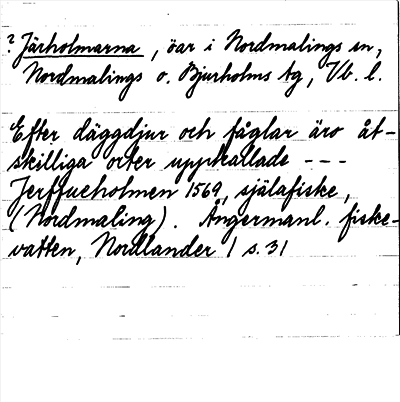 ? Järholmarna, öar i Nordmalings sn,
Nordmalings o. Bjurholms tg, Vb. l.
Efter däggdjur och fåglar äro åt-
skilliga orter uppkallade - - -
Jerffueholmen 1569, själafiske,
(Nordmaling). Ångermanl. fiske-
vatten, Nordlander 1 s. 31